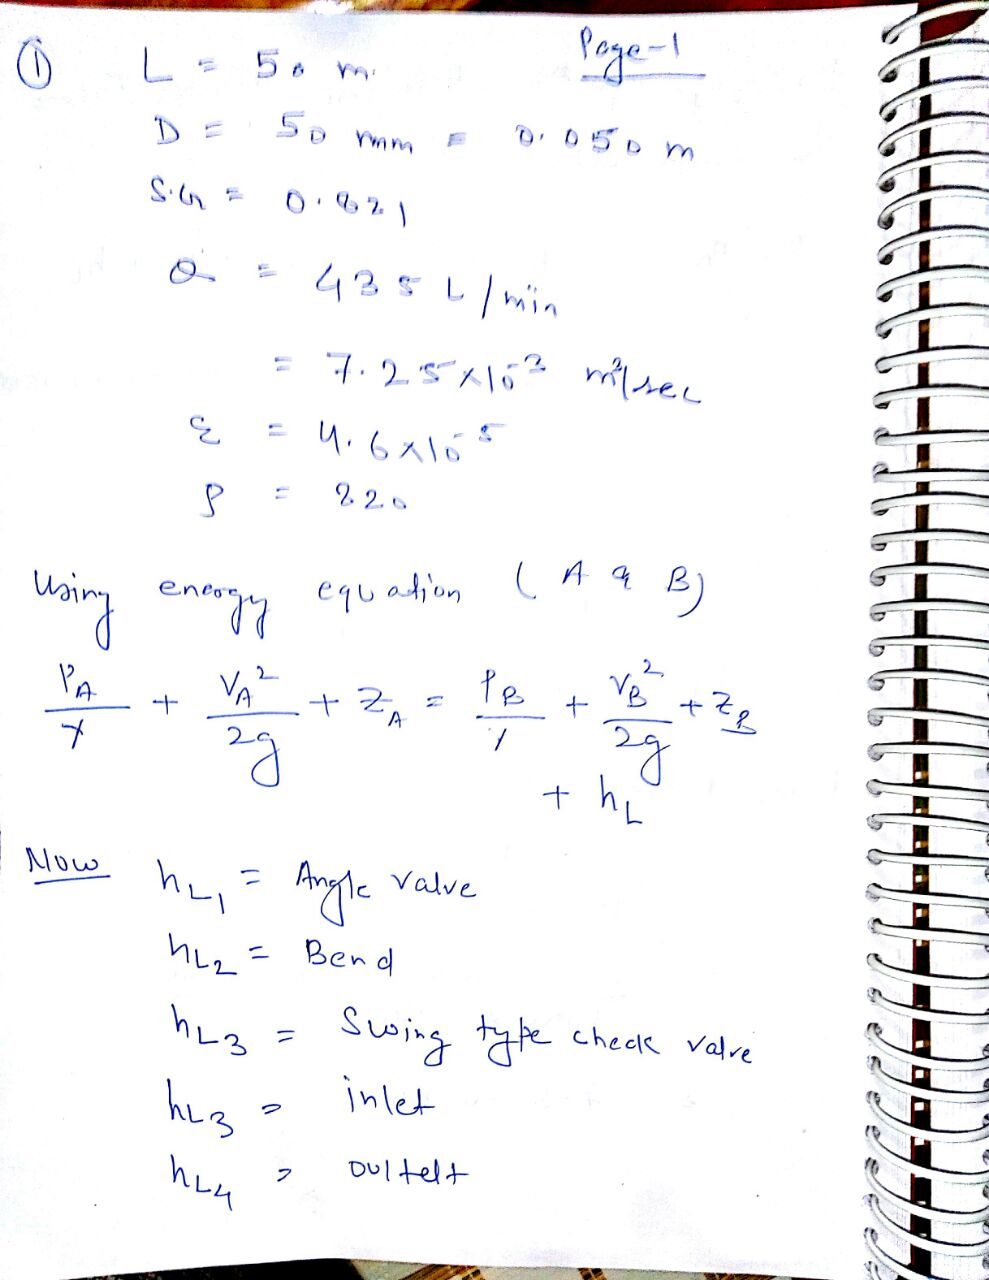 Page-1
① L = 50 m.
D = 50 mm = 0.050 m
S.G = 0.821
Q = 435 L/min
= 7.25×10⁻³ m³/sec
ε = 4.6×10⁻⁵
ρ = 820
Using energy equation (A & B)
P_A/γ + V_A²/2g + Z_A = P_B/γ + V_B²/2g + Z_B
+ h_L
Now h_L₁ = Angle valve
h_L₂ = Bend
h_L₃ = Swing type check valve
h_L₃ = inlet
h_L₄ = oultelt